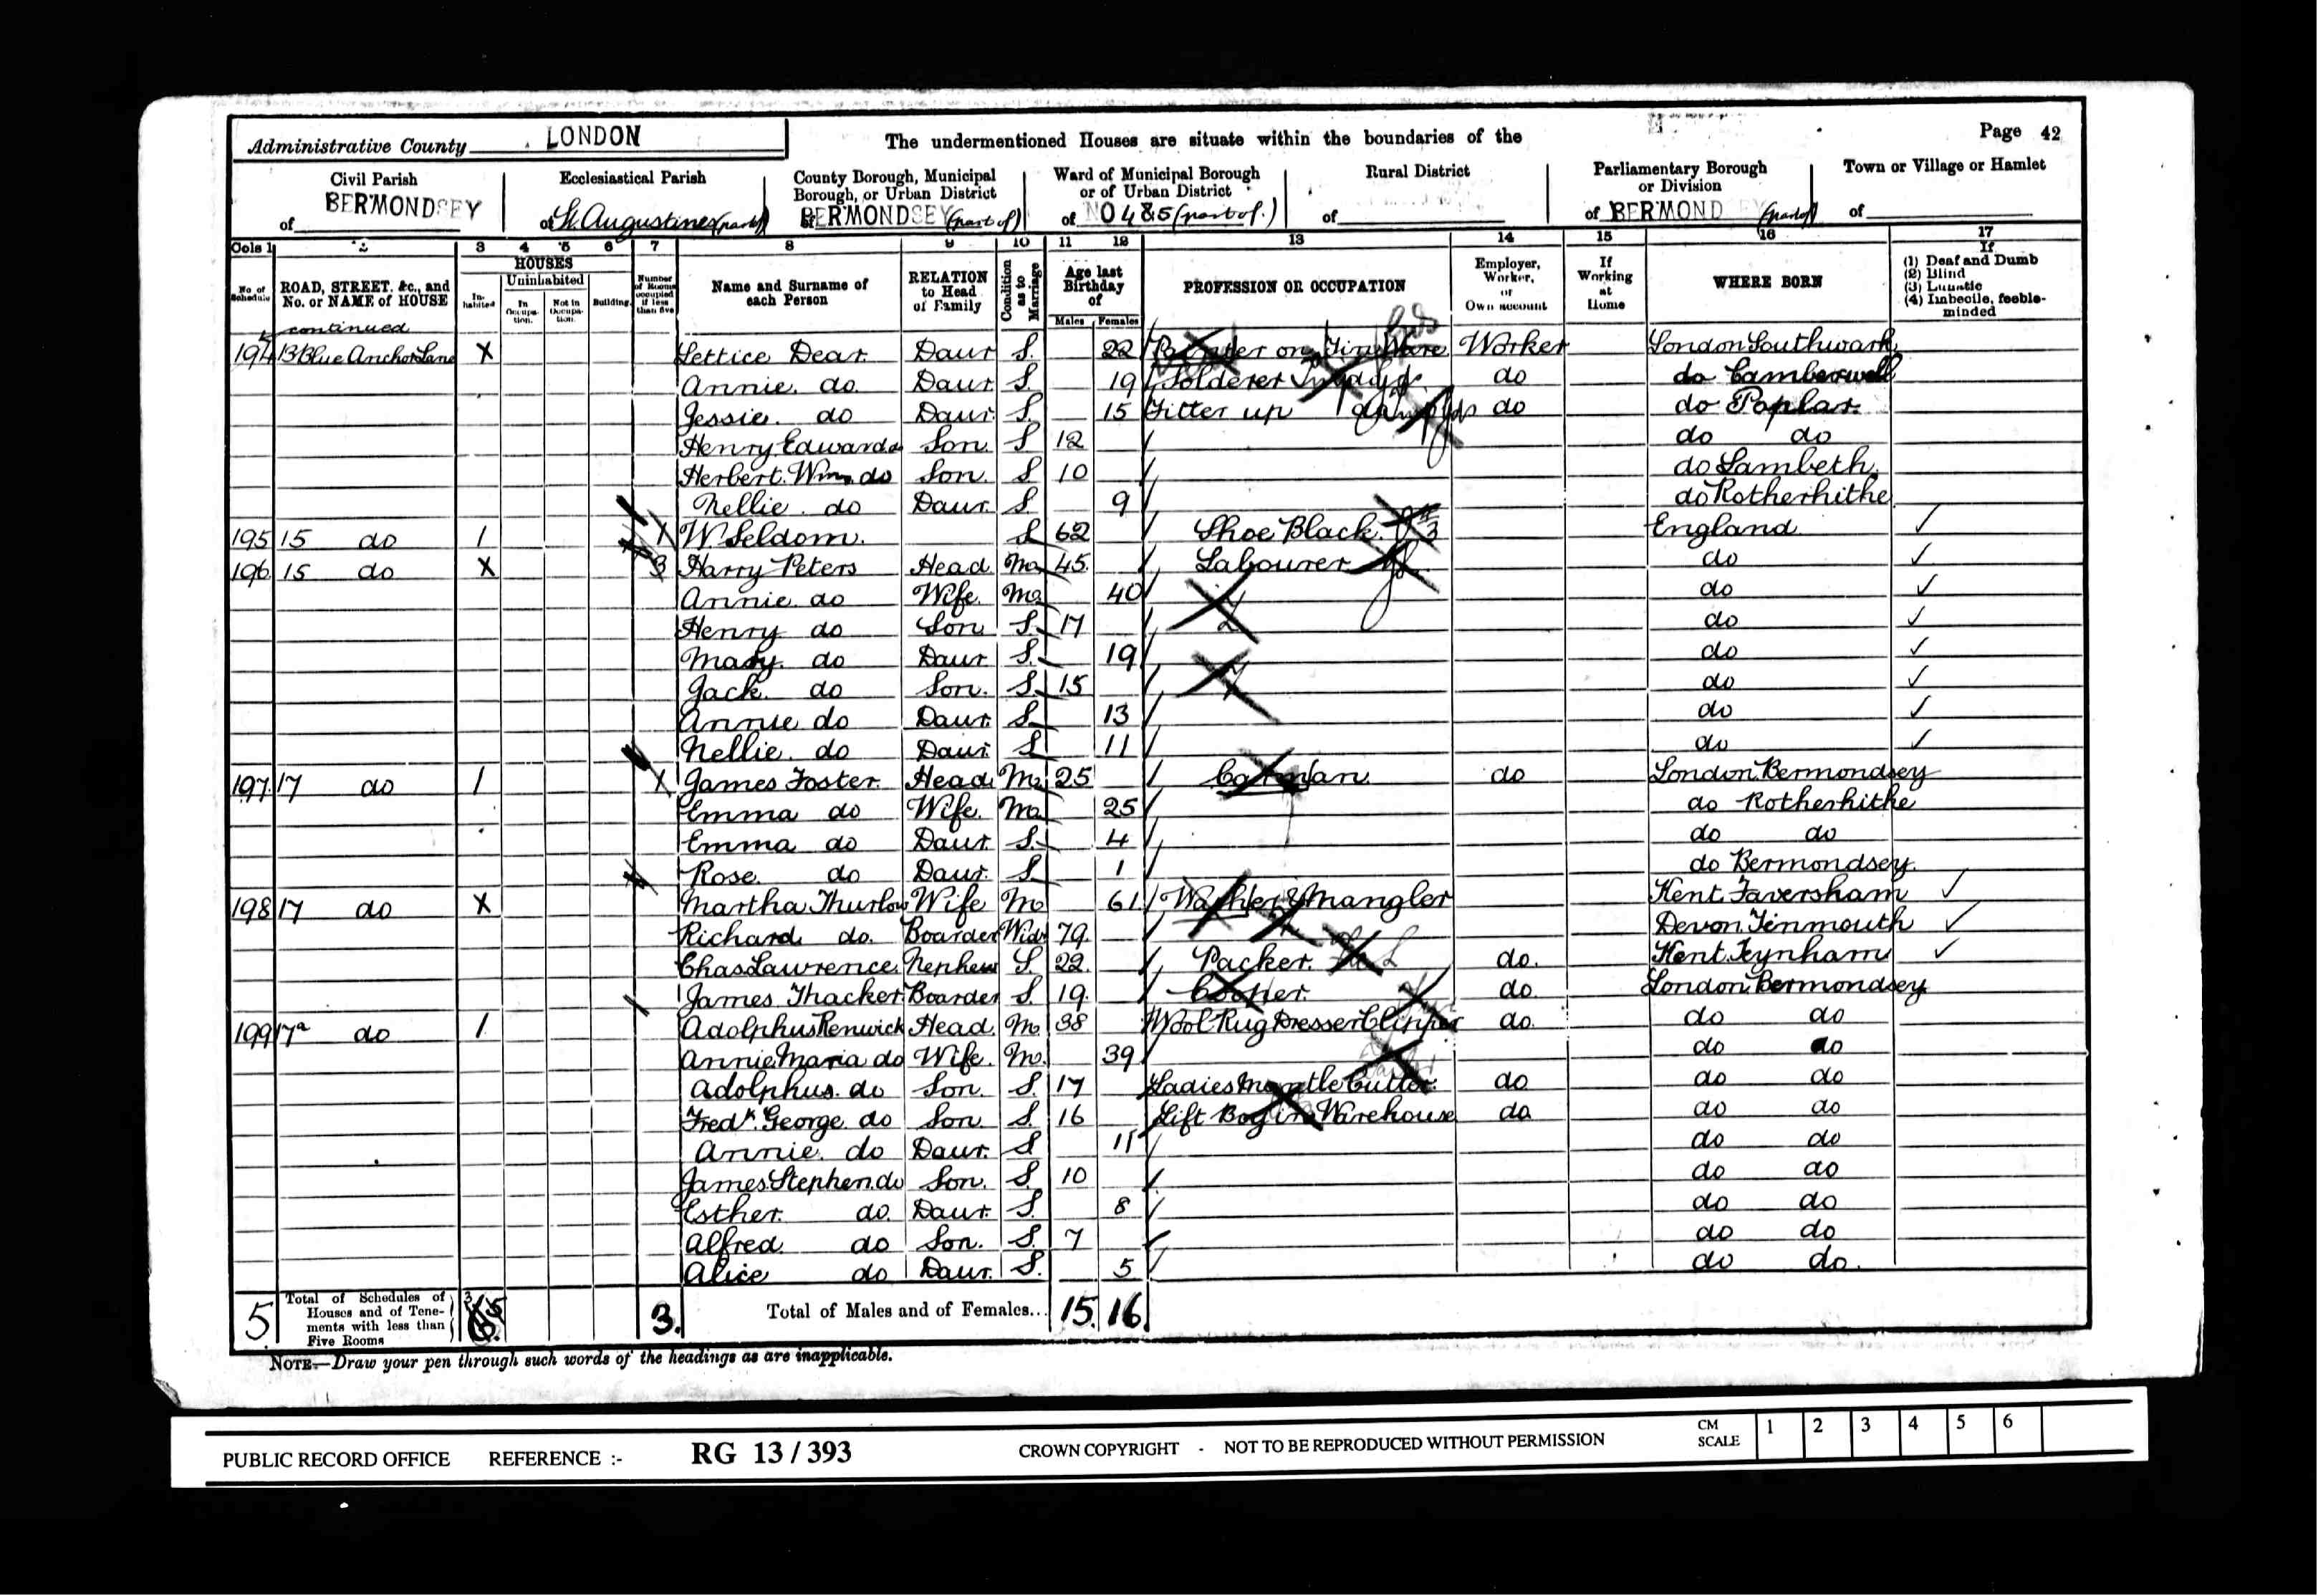 Administrative County LONDON
The undermentioned Houses are situate within the boundaries of the
Page 42
Civil Parish of BERMONDSEY
Ecclesiastical Parish of St. Augustines (part of)
County Borough, Municipal Borough, or Urban District of BERMONDSEY (part of)
Ward of Municipal Borough or of Urban District of NO 485 (part of.)
Rural District of
Parliamentary Borough or Division of BERMOND EY (part of)
Town or Village or Hamlet of
Cols 1 2 3 4 5 6 7 8 9 10 11 12 13 14 15 16 17
No. of Schedule
ROAD, STREET, &c., and No. or NAME of HOUSE
HOUSES
Inhabited
Uninhabited
In Occupation.
Not in Occupation.
Building.
Number of Rooms occupied if less than five
Name and Surname of each Person
RELATION to Head of Family
Condition as to Marriage
Age last Birthday of
Males Females
PROFESSION OR OCCUPATION
Employer, Worker, or Own account
If Working at Home
WHERE BORN
If
(1) Deaf and Dumb
(2) Blind
(3) Lunatic
(4) Imbecile, feeble-minded
continued
194 13 Blue Anchor Lane X Lettice Dear Daur S. 22 Painter on Tin Ware Worker London Southwark
Annie. do Daur S. 19 Solderer do do Camberwell
Jessie. do Daur S. 15 Fitter up do do Poplar.
Henry Edward do Son. S 12 do do
Herbert. Wm. do Son. S 10 do Lambeth.
Nellie. do Daur. S 9 do Rotherhithe
195 15 do 1 1 W. Seldom. S 62 Shoe Black England ✓
196 15 do X 3 Harry Peters Head Ma 45. Labourer do ✓
Annie. do Wife. Ma 40 do ✓
Henry do Son S. 17 do ✓
Mary. do Daur S. 19 do ✓
Jack. do Son. S. 15 do ✓
Annie do Daur. S 13 do ✓
Nellie. do Daur S 11 do ✓
197. 17 do 1 James Foster. Head Ma 25 Carman do London Bermondsey
Emma do Wife. Ma 25 do Rotherhithe
Emma do Daur. S. 4 do do
Rose. do Daur. S 1 do Bermondsey.
198 17 do X Martha Thurlow Wife M 61 Washer & Mangler Kent Faversham ✓
Richard do. Boarder Widr 79. Devon Tinmouth ✓
Chas Lawrence. Nephew S. 22. Packer. do. Kent. Teynham ✓
James Thacker Boarder S. 19. Cooper. do. London Bermondsey
199 17a do 1 Adolphus Renwick Head. M. 38 Wool Rug Dresser Clipper do. do do
Annie Maria do Wife. M. 39 do do
Adolphus. do Son. S. 17 Ladies Mantle Cutter. do do do
Fredk. George do Son. S. 16 Lift Boy in Warehouse do do do
Annie. do Daur. S 11 do do
James Stephen. do Son. S. 10 do do
Esther. do. Daur. S. 8 do do
Alfred do Son. S. 7 do do
Alice do Daur. S. 5 do do.
5 Total of Schedules of Houses and of Tenements with less than Five Rooms 3. Total of Males and of Females... 15. 16.
NOTE—Draw your pen through such words of the headings as are inapplicable.
PUBLIC RECORD OFFICE REFERENCE :- RG 13 / 393 CROWN COPYRIGHT - NOT TO BE REPRODUCED WITHOUT PERMISSION CM SCALE 1 2 3 4 5 6